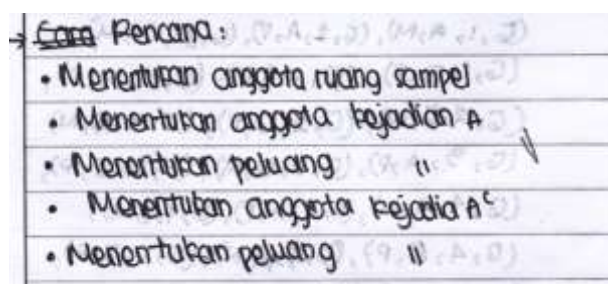 → Cara Rencana:
• Menentukan anggota ruang sampel
• Menentukan anggota kejadian A
• Menentukan peluang "
• Menentukan anggota kejadia Aᶜ
• Menentukan peluang "